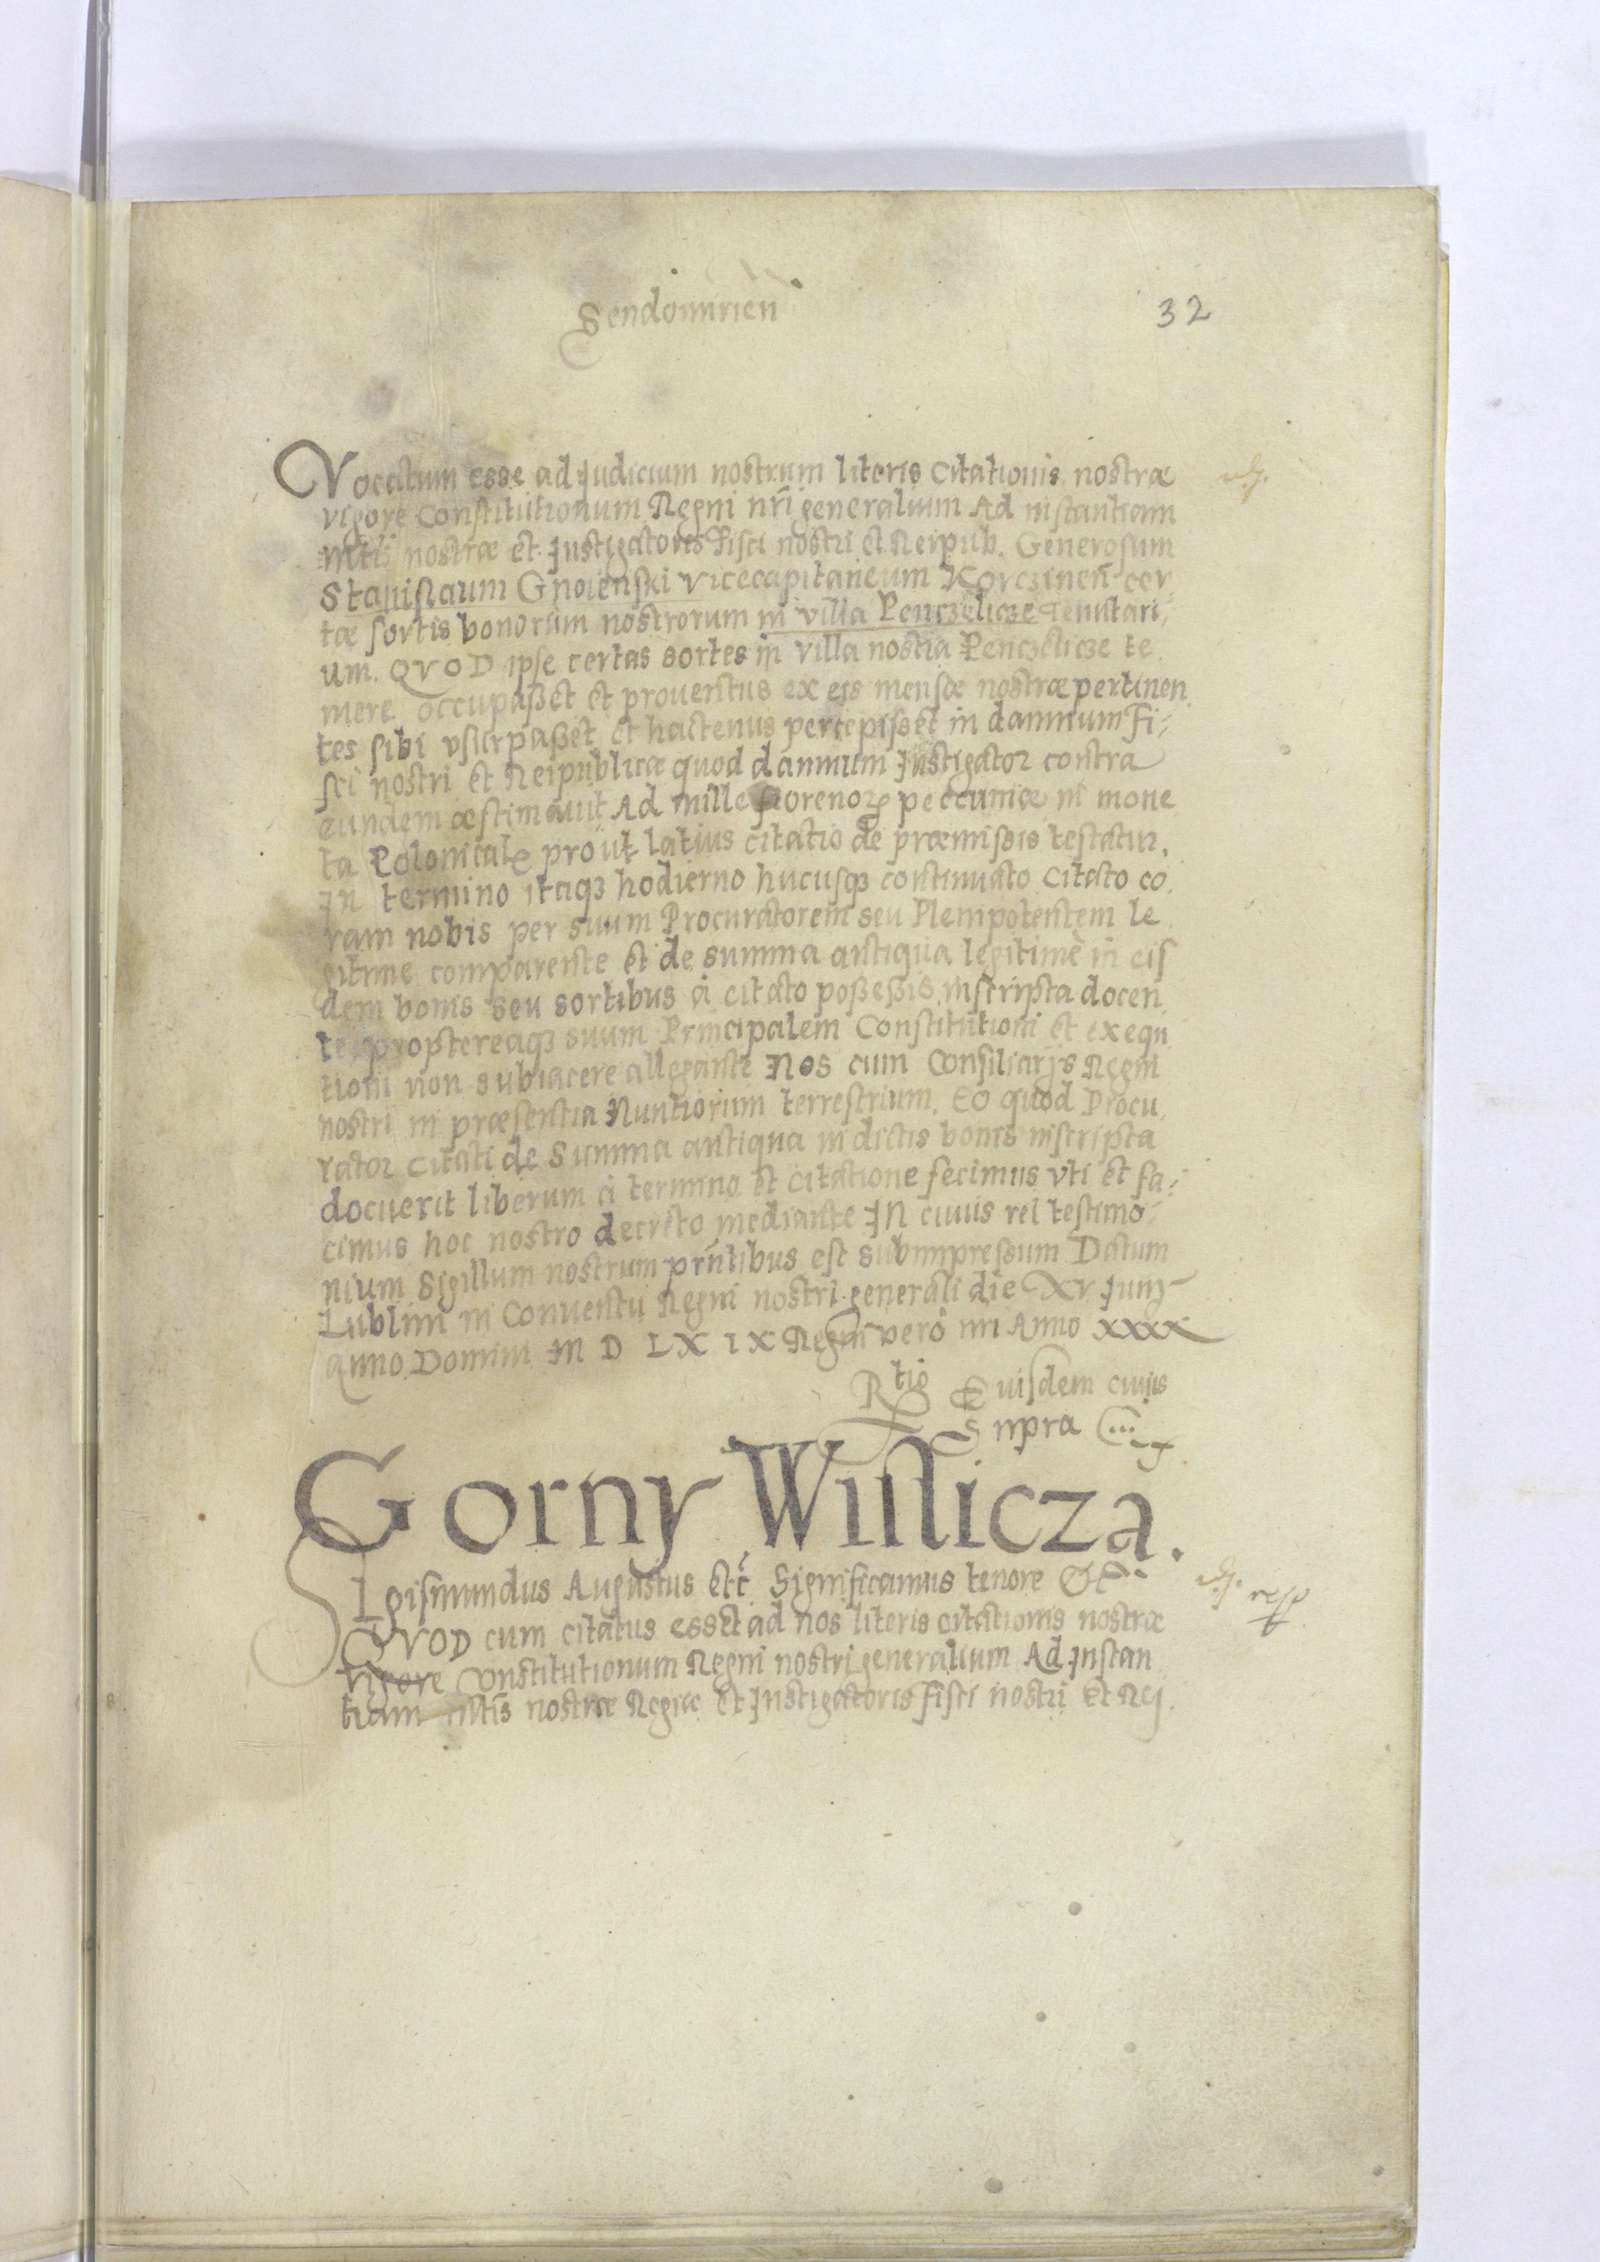 Sendomirien
32
Vocatum esse ad Judicium nostrum literis Citationis nostræ
vigore Constitutionum Regni nri generalium Ad instantiam
mtis nostræ et Instigatoris Fisci nostri et Reipub. Generosum
Stanislaum Gnoienski Vicecapitaneum Korczinen cer-
tæ sortis bonorum nostrorum in villa Penczelicze Tenutari-
um. QVOD ipse certas sortes in villa nostra Penczelicze te
mere occupaßet et prouentus ex eis mensæ nostræ pertinen
tes sibi vsurpaßet et hactenus percepisset in damnum Fi-
sci nostri et Reipublicæ quod damnum Instigator contra
eundem æstimauit Ad mille florenoꝝ peccuniæ in mone
ta Polonicalꝭ prout latius citatio de præmissis testatur.
In termino itaqꝫ hodierno hucusqꝫ continuato Citato co
ram nobis per suum Procuratorem seu Plenipotentem le
gitime comparente et de summa antiqua legitimè in eis
dem bonis seu sortibus à citato poßeßis inscripta docen
te proptereaqꝫ suum Principalem Constitutioni et exequ
tioni non subiacere allegante Nos cum Consiliarijs Regni
nostri in præsentia Nuntiorum terrestrium. Eo quod Procu
rator Citati de Summa antiqua in dictis bonis inscripta
docuerit liberum à termino et citatione fecimus vti et fa-
cimus hoc nostro decreto mediante In cuius rei testimo-
nium Sigillum nostrum prntibus est subimpressum Datum
Lublini in Conuentu Regni nostri generali die XV Junij
anno Domini M D LX IX Regni verò nri Anno XXXX
Rtio Euisdem cuius
Supra
Gorny Wislicza.
Sigismundus Augustus etc Significamus tenore Etc
QVOD cum citatus esset ad nos literis citationis nostræ
vigore Constitutionum Regni nostri generalium Ad Instan
tiam mtis nostræ Regiæ et Instigatoris Fisci nostri et Rei